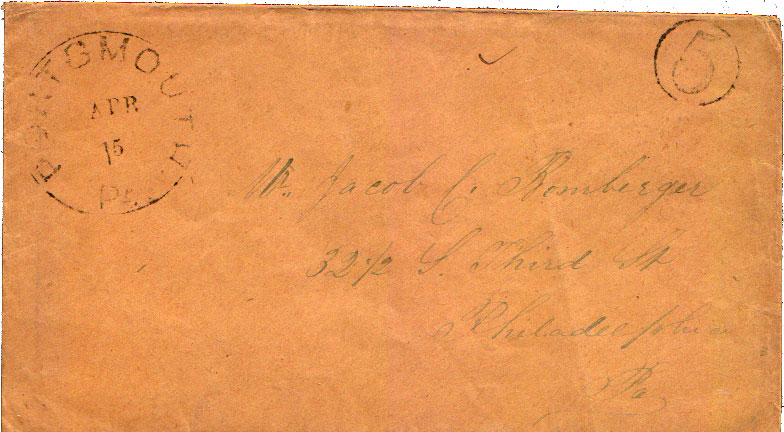 PORTSMOUTH
APR
15
Pa.
5
Mr. Jacob C. Bomberger
32 1/2 S. Third St
Philadelphia
Pa